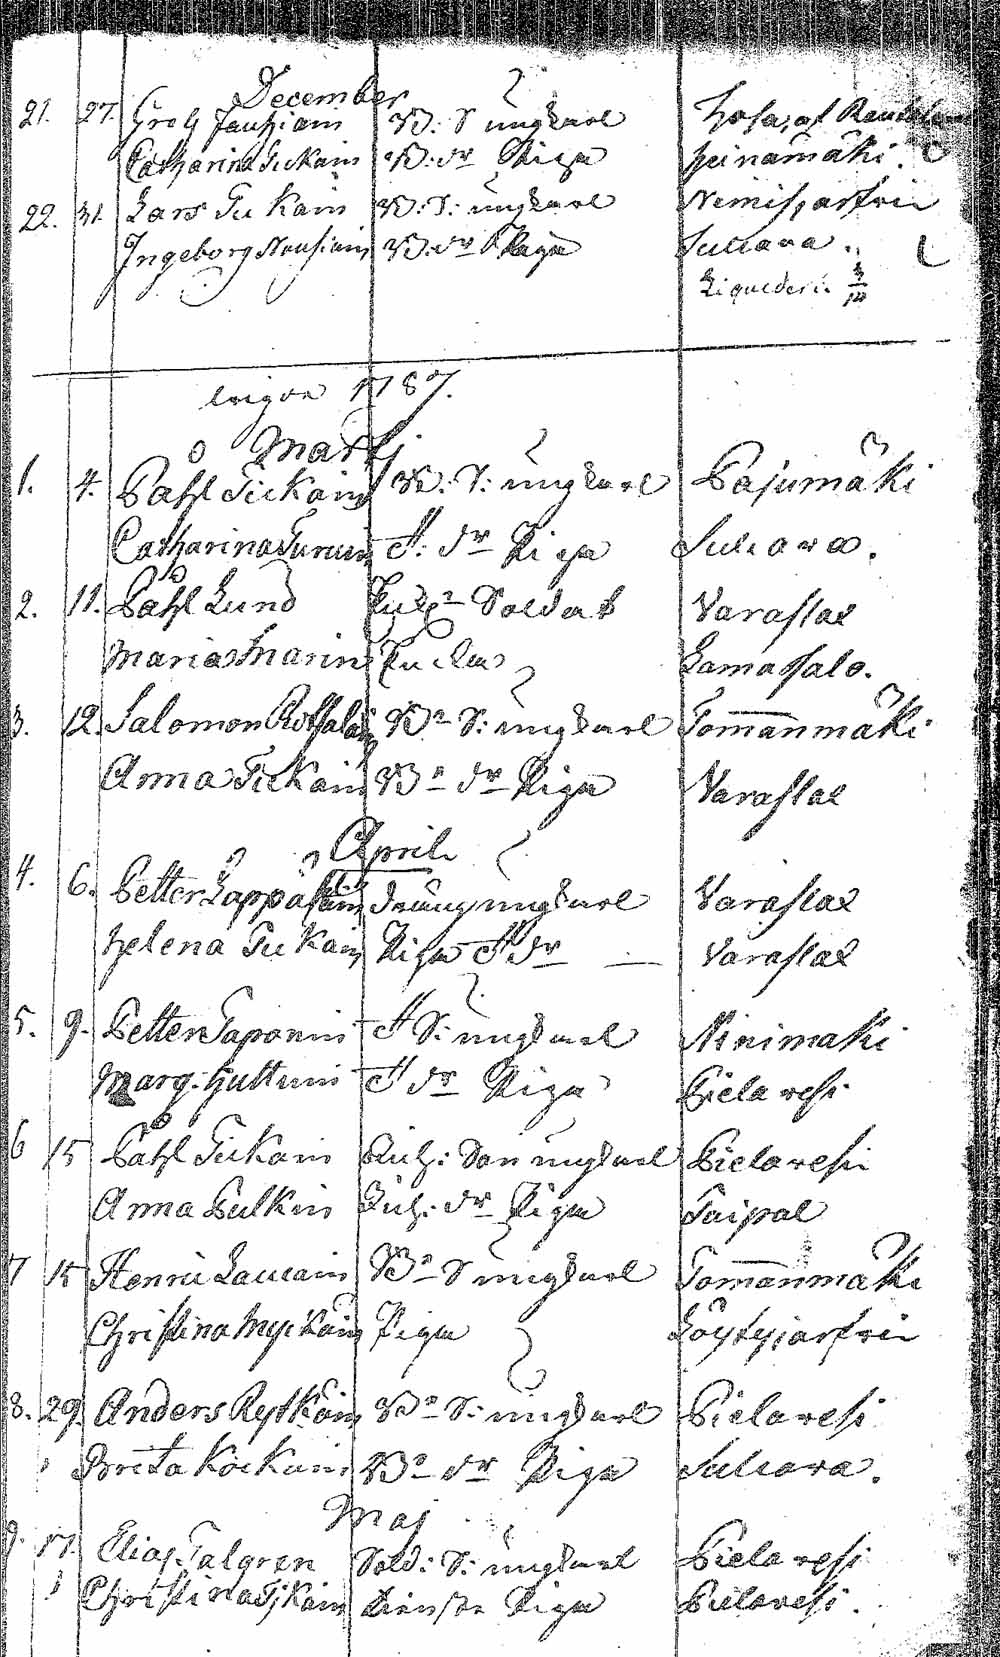 December
21. 27. Grels Jauhiain B: S ungkarl Hofa, af Rautal
Catharina Tickain B: dr Piga heinamäki.
22. 31. Lars Tickain B: S: ungkarl Nemisjarfvi
Ingeborg Nousiain B: dr Piga Suliava.
1787.
Martj
1. 4. Påhl Tickain B: S: ungkarl Pajumäki
Catharina Turuin H: dr Piga Suliava.
2. 11. Påhl Lund Soldat Varaslax
Maria Marin Lamasalo.
3. 12. Salomon Rothsalain Bn S: ungkarl Tomanmäki
Anna Tickain Bn dr Piga Varaslax
April
4. 6. Petter Lappalain dräng ungkarl Varaslax
helena Tickain Piga H dr — Varaslax
5. 9. Petter Taponin H S: ungkarl Ninimäki
Marg. huttuin H dr Piga Pielavesi
6 15 Påhl Tickain Inh: Son ungkarl Pielavesi
Anna Pulkin Inh: dr Piga Taipal
7 15 Henric Laucain Bn S ungkarl Tomanmäki
Christina Myckäin Piga Löytyjarfvi
8. 29. Anders Rytköin Bn S: ungkarl Pielavesi
Brita Kockain Bn dr Piga Suliava.
Maj
9. 17. Elias Talgren Sold: S: ungkarl Pielavesi
Christina Tickain Piga Pielavesi.